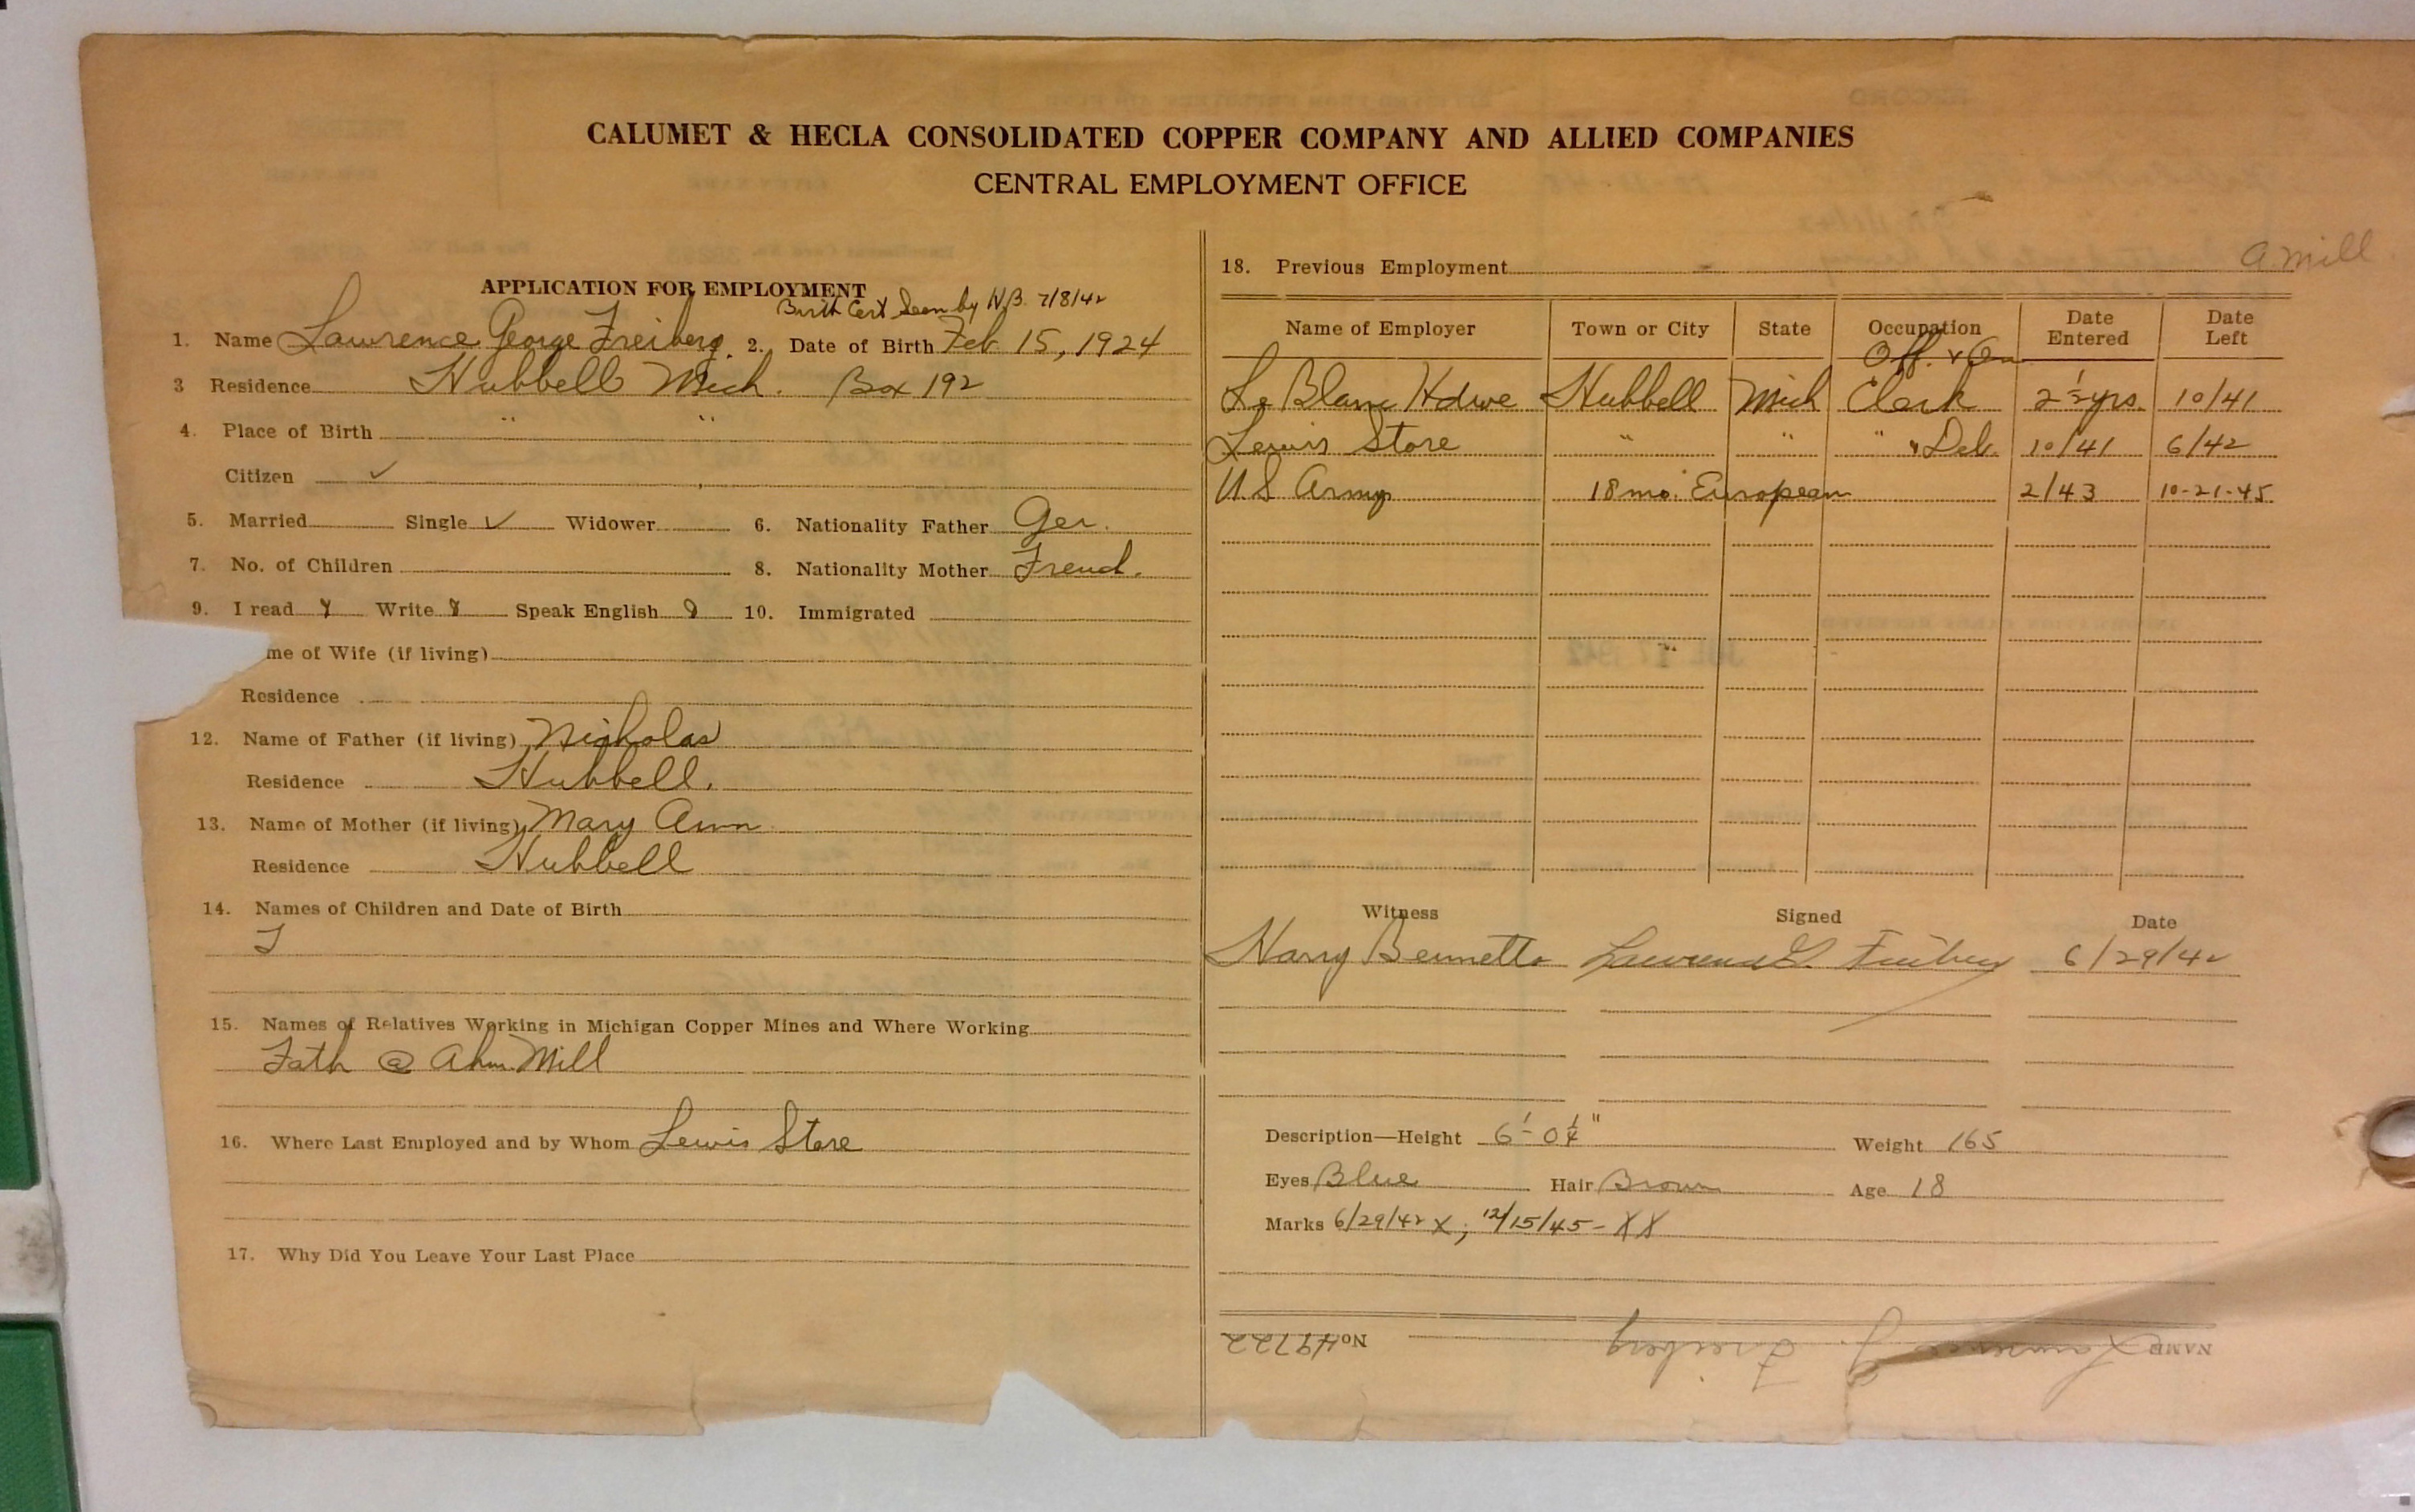 CALUMET & HECLA CONSOLIDATED COPPER COMPANY AND ALLIED COMPANIES
CENTRAL EMPLOYMENT OFFICE
APPLICATION FOR EMPLOYMENT
Birth Cert Seen by H.B. 7/8/42
1. Name Lawrence George Freiberg. 2. Date of Birth Feb 15, 1924
3 Residence Hubbell Mich. Box 192
4. Place of Birth " "
Citizen ✓
5. Married Single ✓ Widower 6. Nationality Father Ger.
7. No. of Children 8. Nationality Mother French.
9. I read y Write y Speak English y 10. Immigrated
me of Wife (if living)
Residence
12. Name of Father (if living) Nicholas
Residence Hubbell.
13. Name of Mother (if living) Mary Ann
Residence Hubbell
14. Names of Children and Date of Birth
15. Names of Relatives Working in Michigan Copper Mines and Where Working
Fath @ Ahm. Mill
16. Where Last Employed and by Whom Lewis Store
17. Why Did You Leave Your Last Place
18. Previous Employment A Mill
Name of Employer Town or City State Occupation Date Entered Date Left
Off & On
Le Blanc Hdwe Hubbell Mich Clerk 2½ yrs. 10/41
Lewis Store " " " " Del. 10/41 6/42
U.S Army 18 mo. European 2/43 10-21-45
Witness Signed Date
Harry Bennetts Lawrence G. Freiberg 6/29/42
Description—Height 6'-0¼" Weight 165
Eyes Blue Hair Brown Age 18
Marks 6/29/42 X; 12/15/45 - XX
NAME Lawrence G. Freiberg No 49722